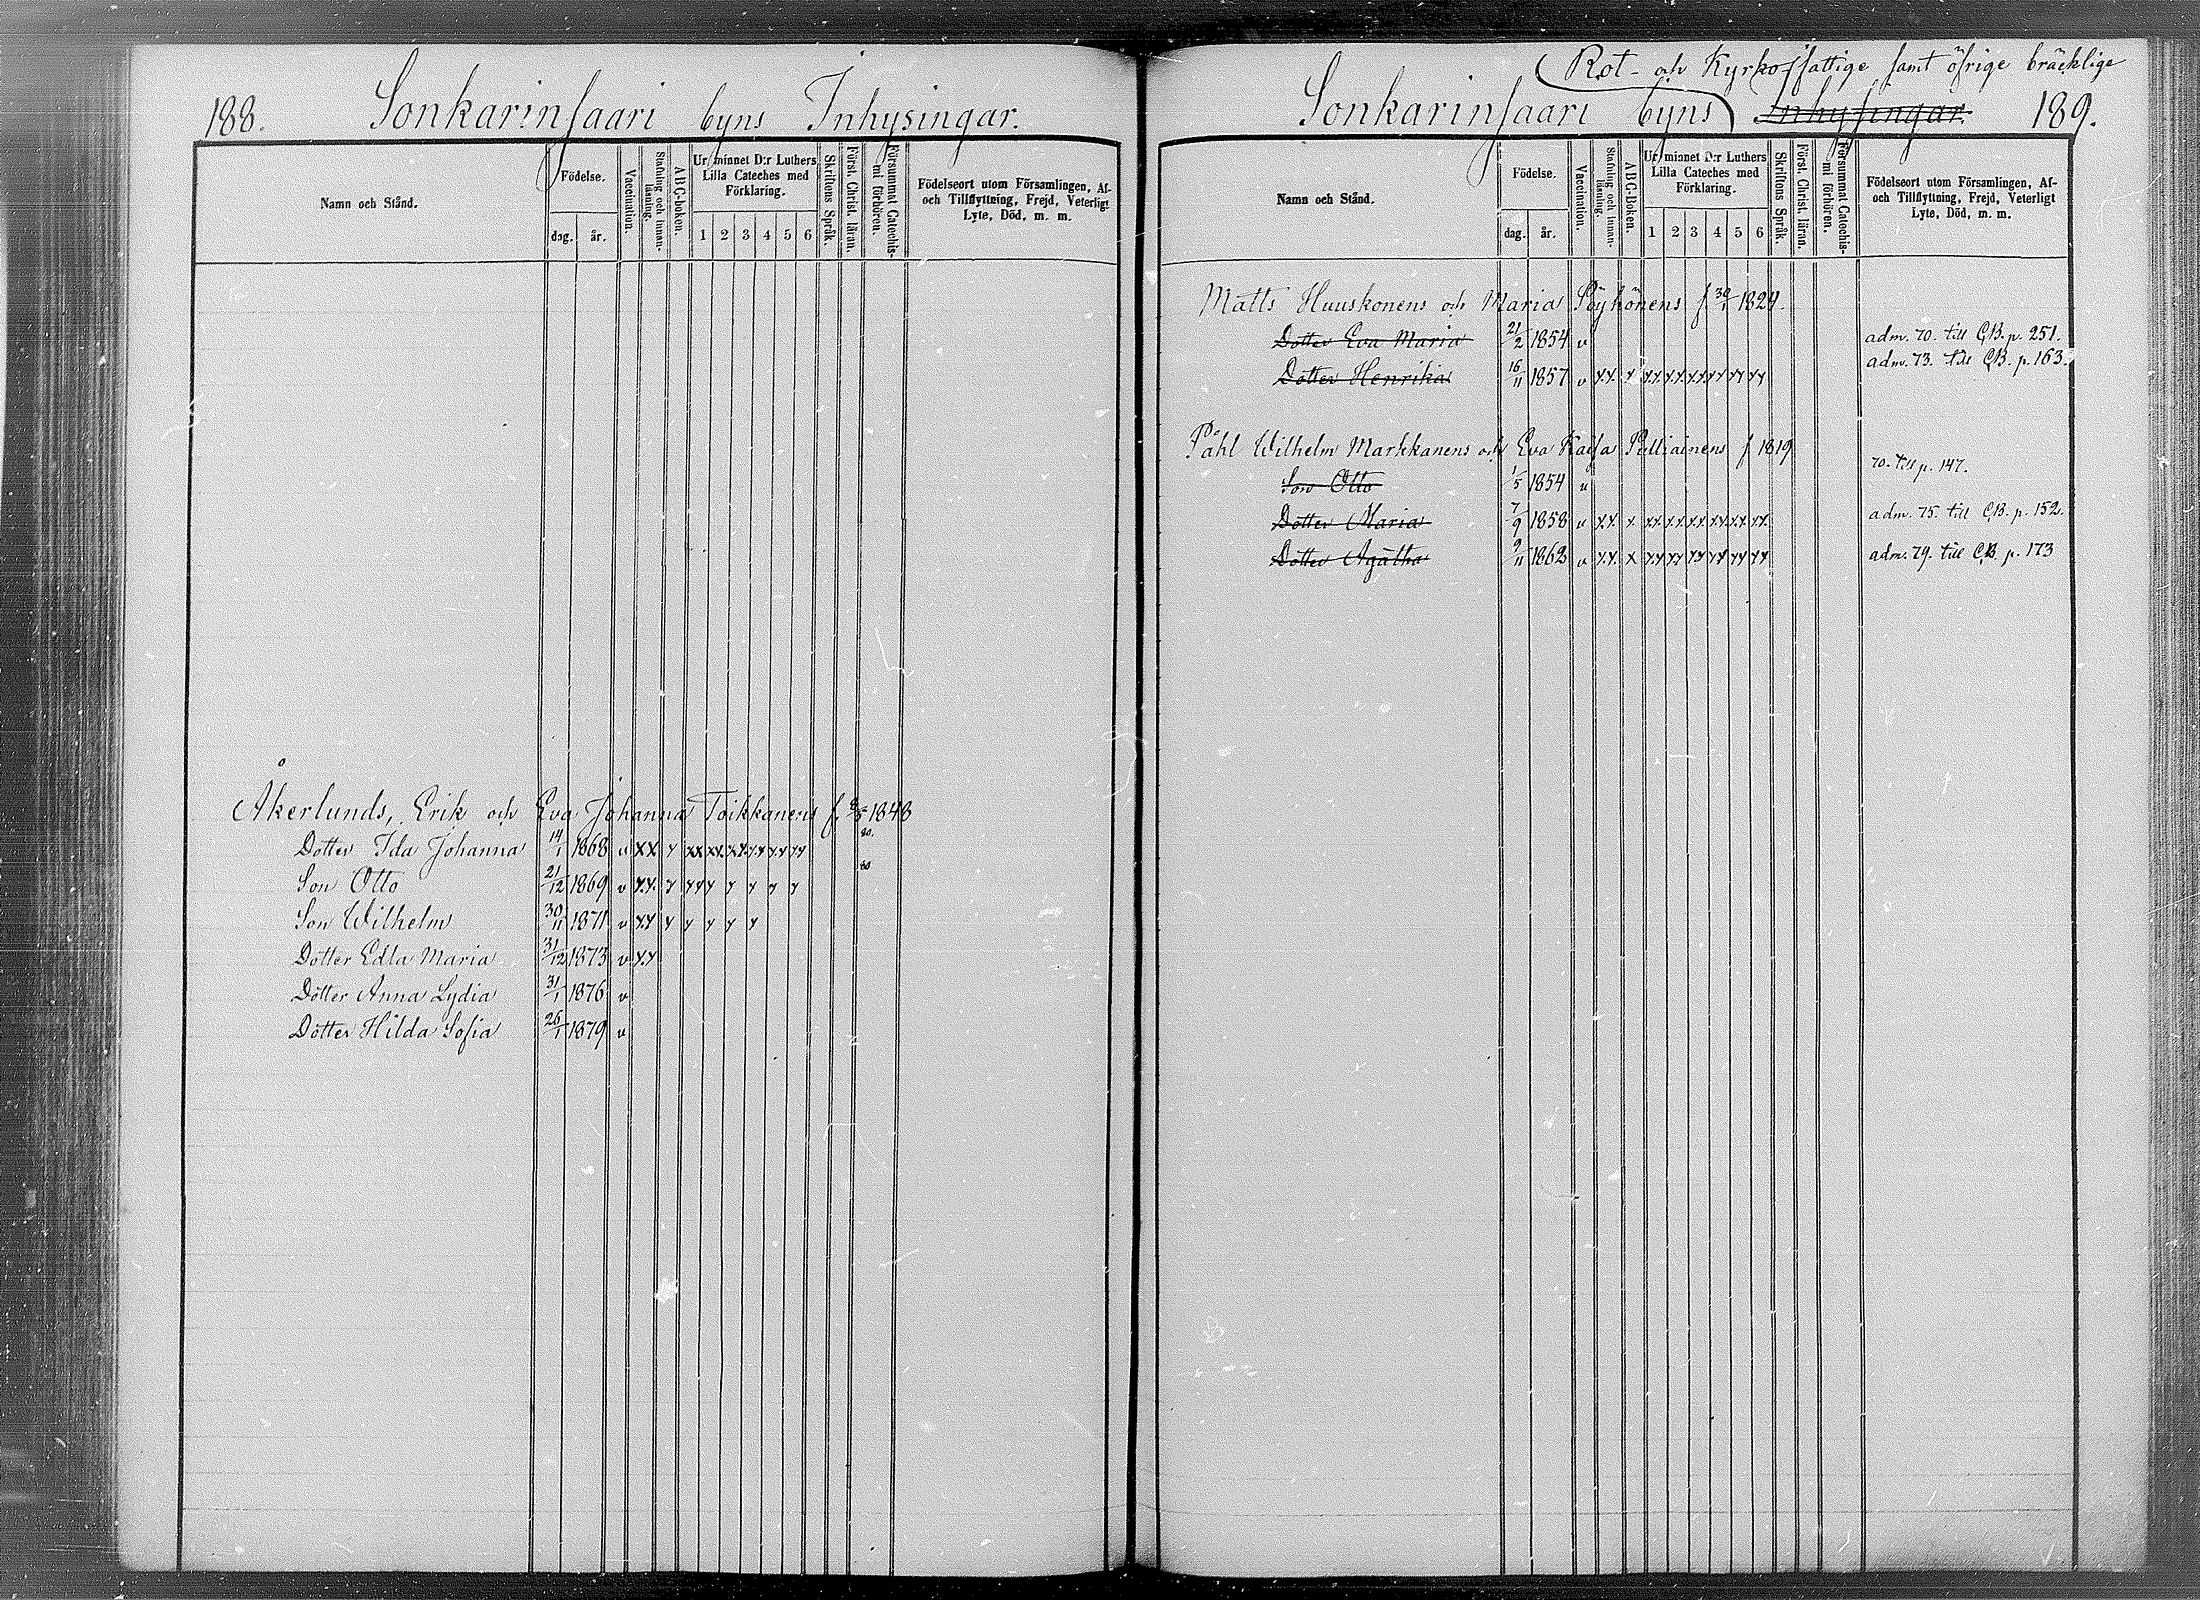 188.
Sonkarinsaari byns Inhysingar.
Namn och Stånd.
Födelse.
dag.
år.
Vaccination.
Stafning och innan-läsning.
ABC-boken.
Ur minnet D:r Luthers Lilla Cateches med Förklaring.
1 2 3 4 5 6
Skriftens Språk.
Först. Christ. läran.
Försummat Catechis-mi förhören.
Födelseort utom Församlingen, Af- och Tillflyttning, Frejd, Veterligt Lyte, Död, m. m.
Åkerlunds, Erik och Eva Johanna Toikkanens f. 8/5 1848
Dotter Ida Johanna 14/1 1868 v xx x xx xx xx xx xx xx 80.
Son Otto 21/12 1869 v xx x xx x x x x x 80
Son Wilhelm 30/11 1871 v xx x x x x x
Dotter Edla Maria 31/12 1873 v xx
Dotter Anna Lydia 31/1 1876 v
Dotter Hilda Sofia 26/1 1879 v
Rot- och Kyrkofattige samt öfrige bräcklige
Sonkarinsaari byns Inhysingar. 189.
Namn och Stånd.
Födelse.
dag.
år.
Vaccination.
Stafning och innan-läsning.
ABC-Boken.
Ur minnet D:r Luthers Lilla Cateches med Förklaring.
1 2 3 4 5 6
Skriftens Språk.
Först. Christ. läran.
Försummat Catechis-mi förhören.
Födelseort utom Församlingen, Af- och Tillflyttning, Frejd, Veterligt Lyte, Död, m. m.
Matts Huuskonens och Maria Pöyhönens f 30/1 1824.
Dotter Eva Maria 21/2 1854 v adm. 70. till C.B. p. 251.
Dotter Henrika 16/11 1857 v xx x xx xx xx xx xx xx adm. 73. till C.B. p. 163.
Påhl Wilhelm Markkanens och Eva Kaisa Pulliainens f 1819
Son Otto 1/5 1854 v 70. till p. 147.
Dotter Maria 7/9 1858 v xx x xx xx xx xx xx xx adm. 75. till C.B. p. 152.
Dotter Agatha 9/11 1862 v xx x xx xx xx xx xx xx adm. 79. till C.B. p. 173